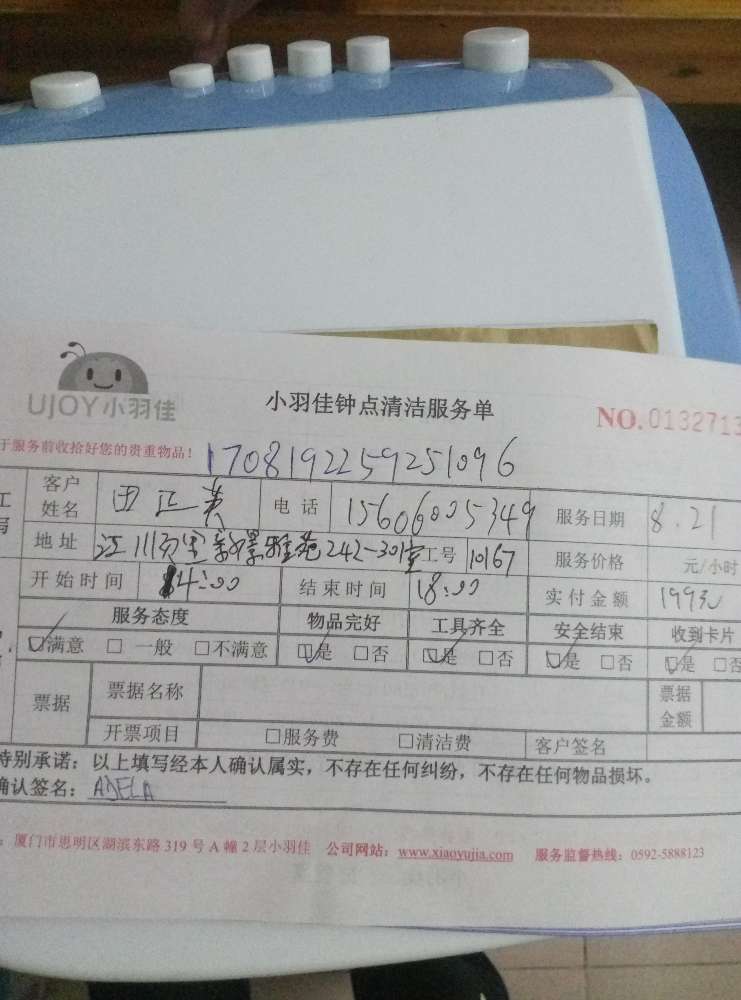 UJOY小羽佳
小羽佳钟点清洁服务单
NO.0132713
于服务前收拾好您的贵重物品!
1708192259251096
客户姓名 田正美 电话 15606005349 服务日期 8.21
地址 242-301室 工号 10167 服务价格 元/小时
开始时间 14:00 结束时间 18:00 实付金额 199元
服务态度 物品完好 工具齐全 安全结束 收到卡片
☑满意 □一般 □不满意 ☑是 □否 ☑是 □否 ☑是 □否 ☑是 □否
票据 票据名称 票据金额
开票项目 □服务费 □清洁费 客户签名
特别承诺:以上填写经本人确认属实,不存在任何纠纷,不存在任何物品损坏。
确认签名:ADELA
:厦门市思明区湖滨东路319号A幢2层小羽佳 公司网站:www.xiaoyujia.com 服务监督热线:0592-5888123